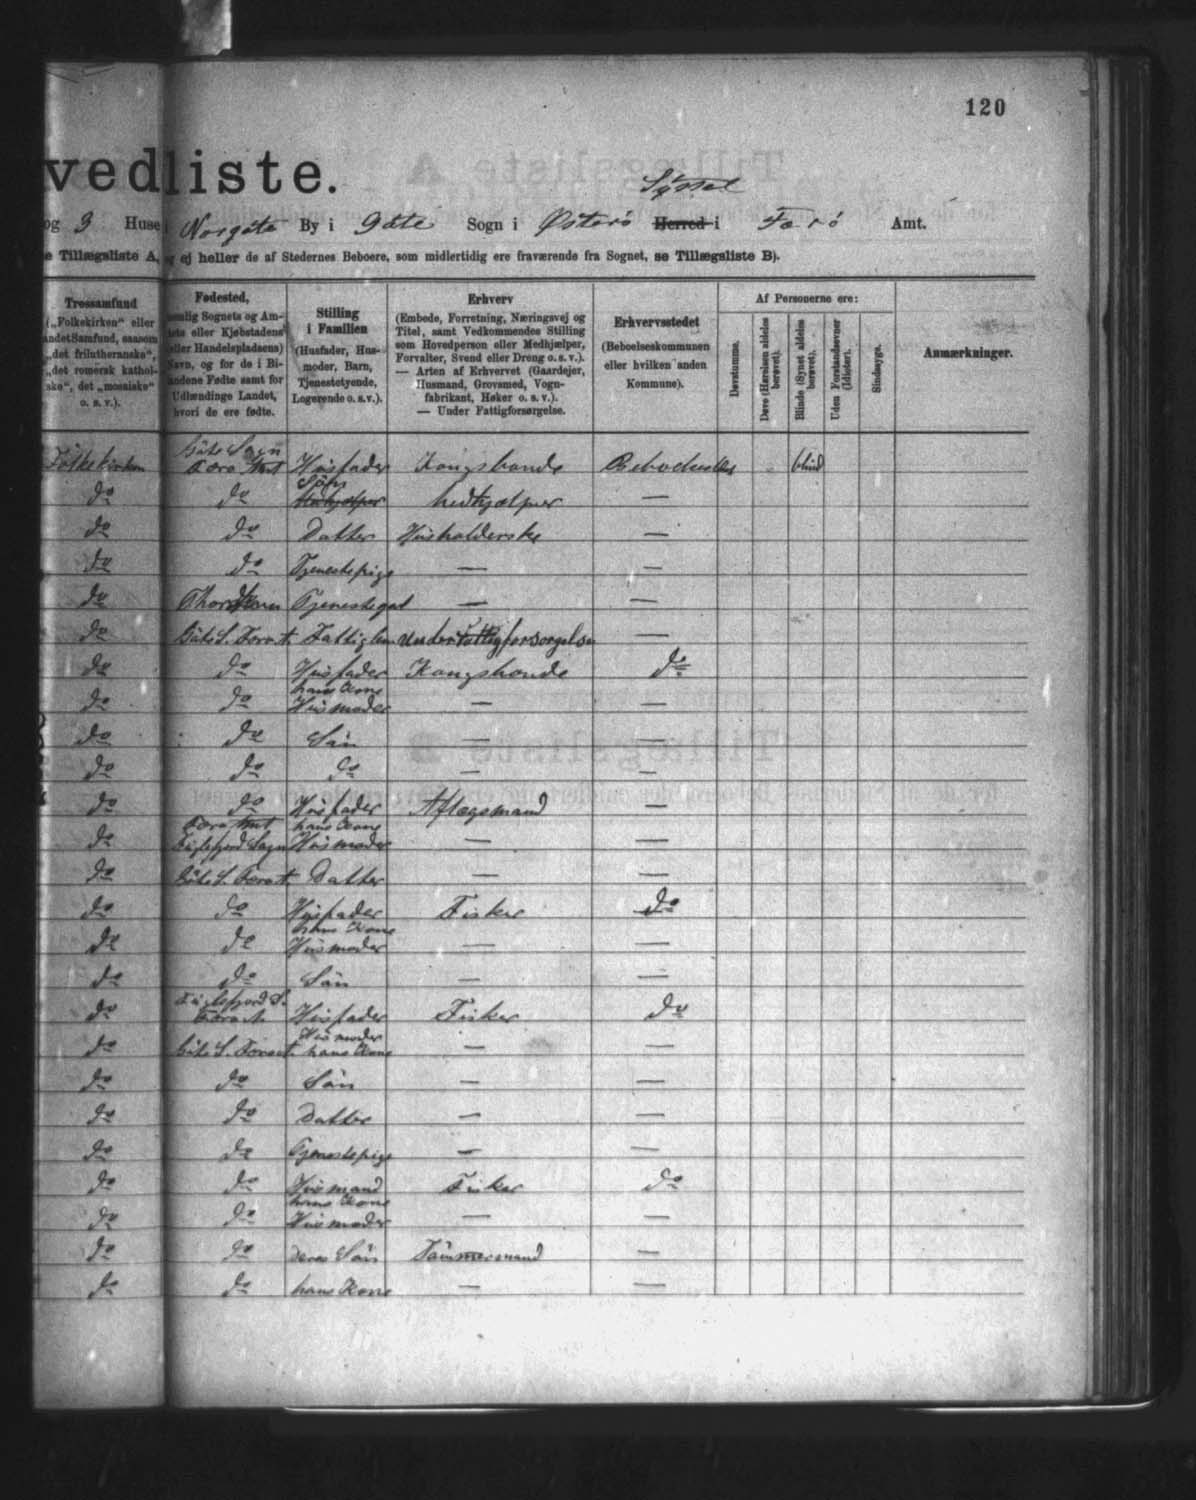 120
vedliste.
Syssel
og 3 Huse Norgöte By i Göte Sogn i Österö Herred i Færö Amt.
e Tillægsliste A, og ej heller de af Stedernes Beboere, som midlertidig ere fraværende fra Sognet, se Tillægsliste B).
Trossamfund („Folkekirken“ eller andet Samfund, saasom „det frilutheranske“, „det romersk katholske“, det „mosaiske“ o. s. v.).
Fødested, nemlig Sognets og Amtets eller Kjøbstadens eller Handelspladsens) Navn, og for de i Bilandene Fødte samt for Udlændinge Landet, hvori de ere fødte.
Stilling i Familien (Husfader, Husmoder, Barn, Tjenestetyende, Logerende o. s. v.).
Erhverv (Embede, Forretning, Næringsvej og Titel, samt Vedkommendes Stilling som Hovedperson eller Medhjælper, Forvalter, Svend eller Dreng o. s. v.). — Arten af Erhvervet (Gaardejer, Husmand, Grovsmed, Vognfabrikant, Høker o. s. v.). — Under Fattigforsørgelse.
Erhvervsstedet (Beboelseskommunen eller hvilken anden Kommune).
Af Personerne ere:
Døvstumme.
Døve (Hørelsen aldeles berøvet).
Blinde (Synet aldeles berøvet).
Uden Forstandsevner (Idioter).
Sindssyge.
Anmærkninger.
Folkekirken Göte Sogn Færö Amt Husfader Kongsbonde blind
do do Sön Medhjælper —
do do Datter Husholderske —
do do Tjenestepige — —
do Tjenestegut — —
do Göte S. Færö A. Fattiglem under Fattigforsörgelse —
do do Husfader Kongsbonde do
do do hans Kone Husmoder — —
do do Sön — —
do do do — —
do do Husfader Aftægsmand —
do Færö Amt Fuglefjord Sogn hans Kone Husmoder — —
do Göte S. Færö A. Datter — —
do do Husfader Fisker do
do do hans Kone Husmoder — —
do do Sön — —
do Fuglefjord S. Færö A. Husfader Fisker do
do Göte S. Færö A. Husmoder hans Kone — —
do do Sön — —
do do Datter — —
do do Tjenestepige — —
do do Husmand Fisker do
do do hans Kone Husmoder — —
do do deres Sön Tömmermand —
do do hans Kone — —